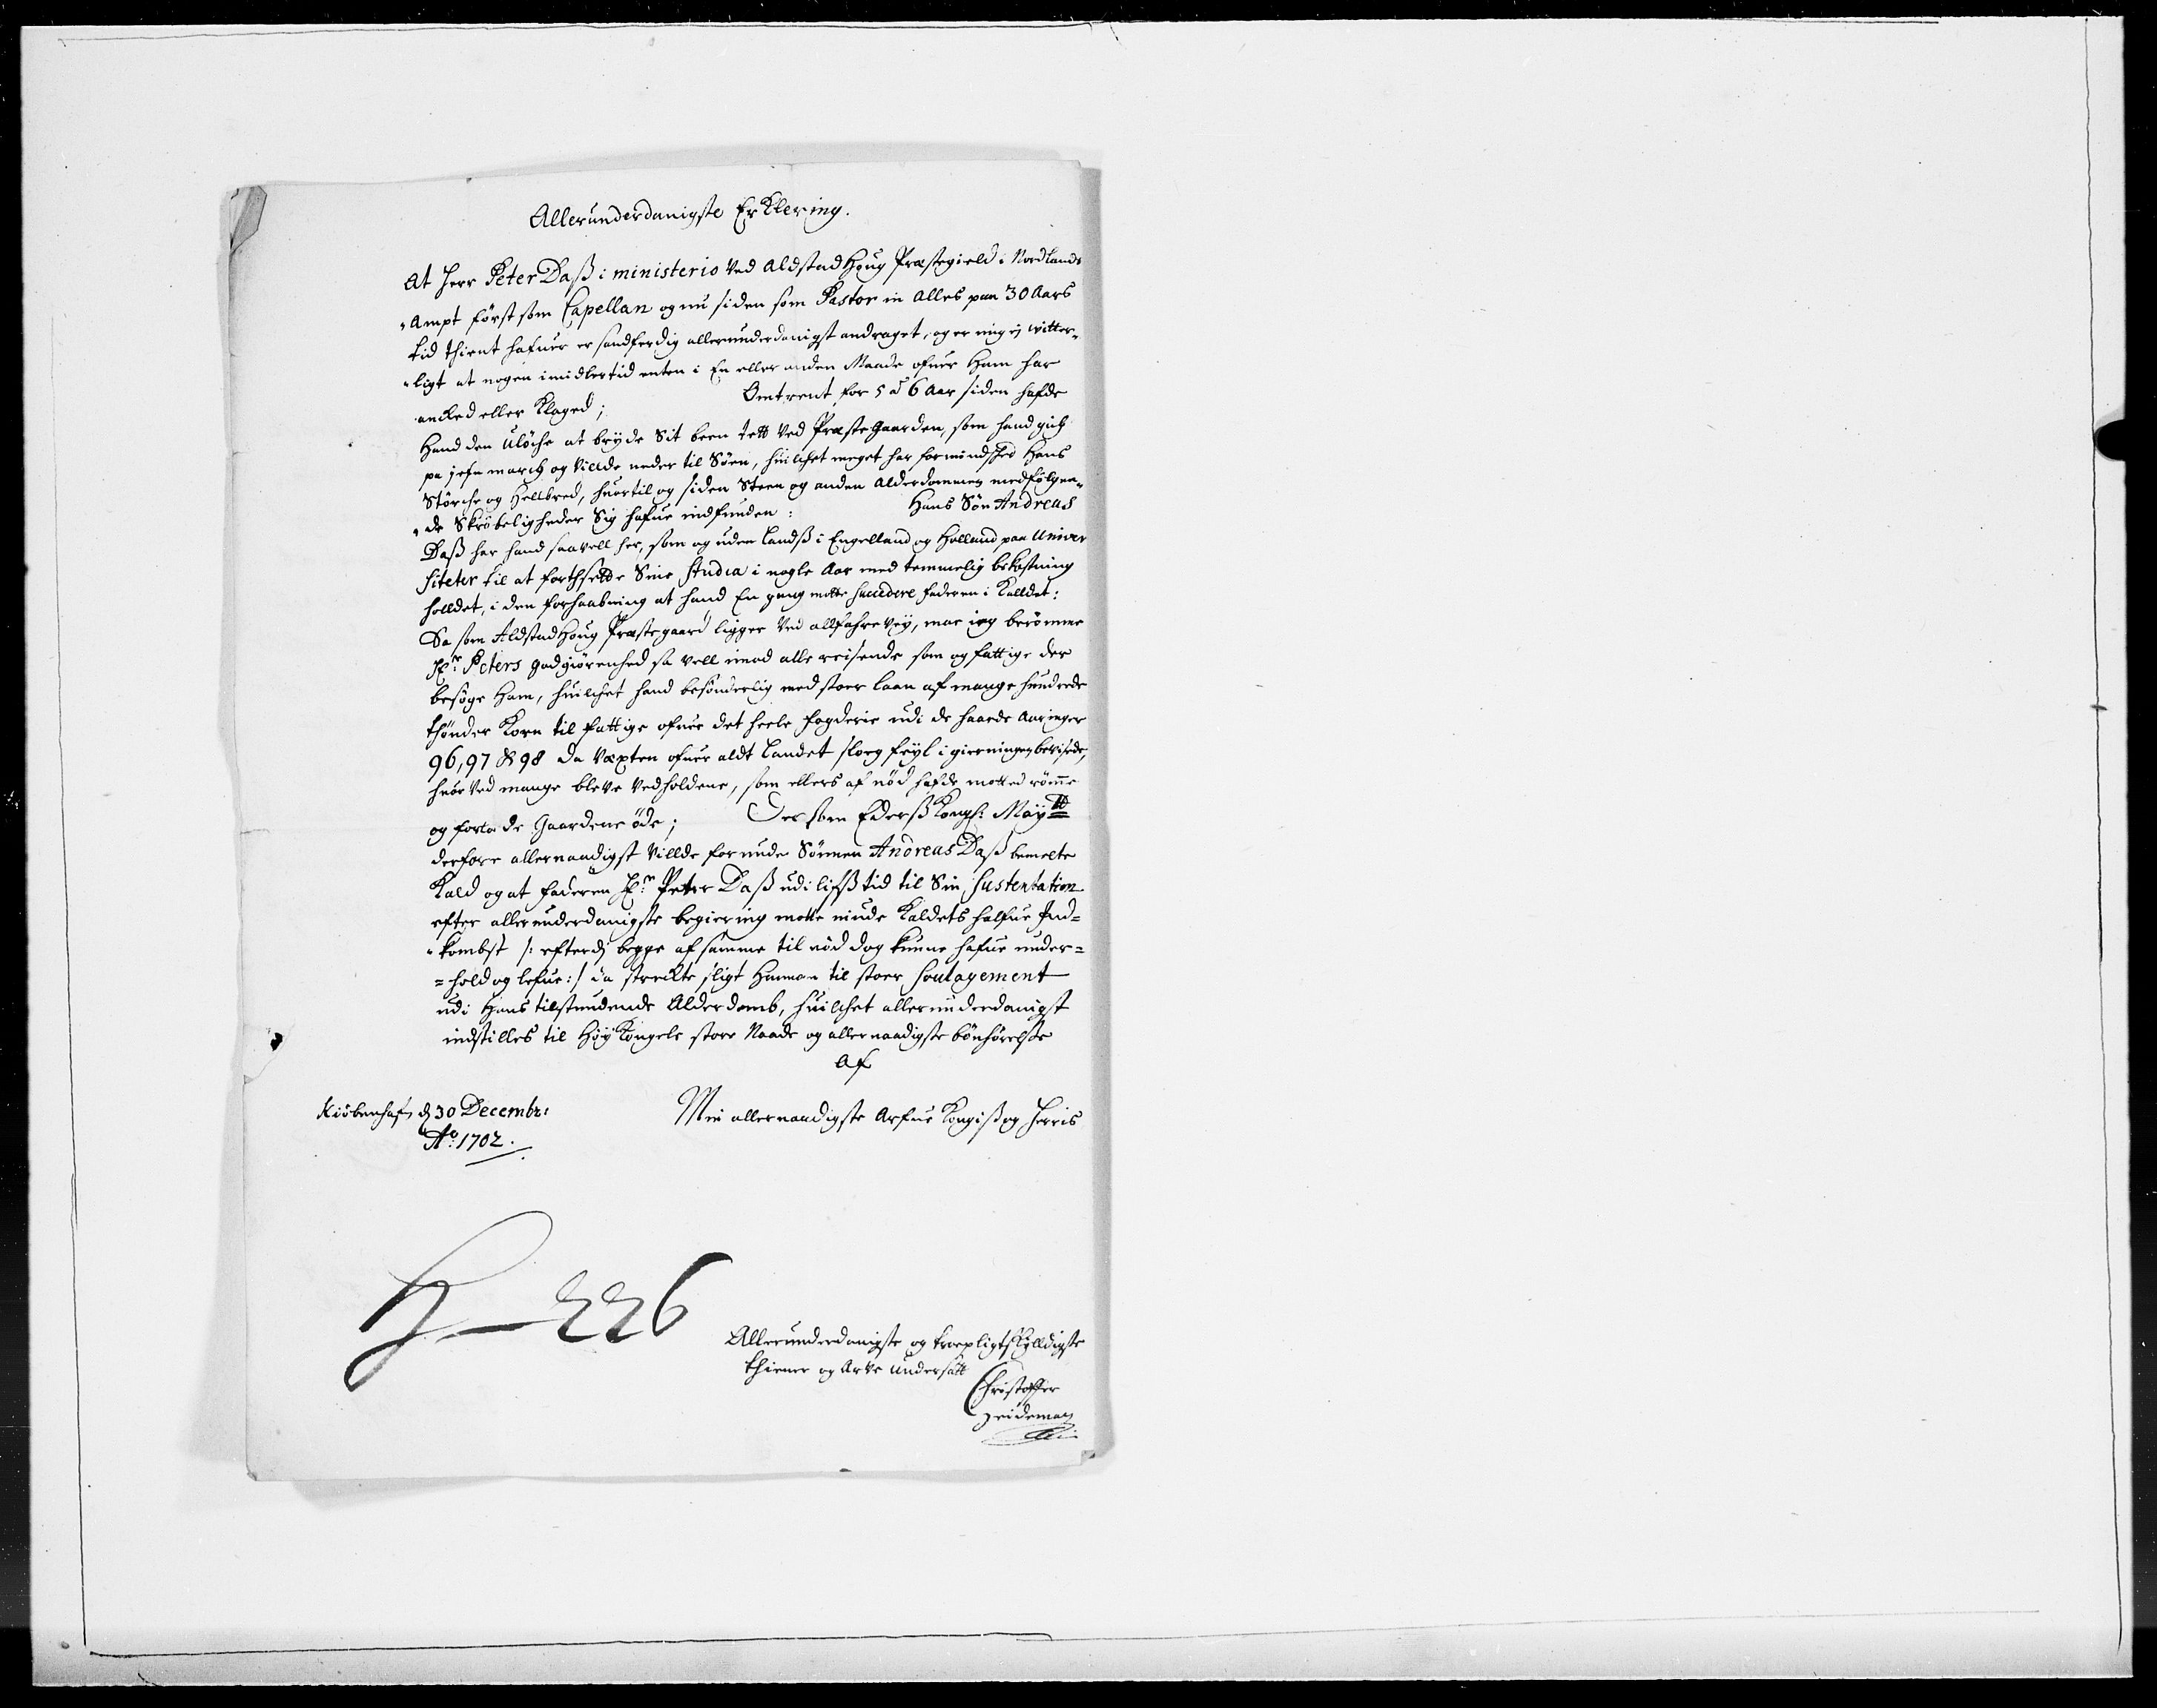 Allerunderdanigste Erklering.
At Herr Peter Daß i ministerio ved Aldstadhoug Præstegield i Nordlands
"Ampt først som Capellan og nu siden som Pastor in Alles paa 30 Aars
tid thient hafuer er sandferdig allerunderdanigst andraget, og er mig ej witter„
"ligt at nogen imidlertid enten i En eller anden Maade ofuer Ham har
ancked eller Klaged; Omtrent for 5 a 6 Aar siden hafde
Hand den Ulöche at bryde Sit been tett ved Præstegaarden, som hand gich
pa jefn march og Villde neder til Söen, huilchet meget har formindsched Hans
Störche og Hellbred, huortil og siden Steen og anden Alderdommen medfölgen„
"de Skröbeligheder Sig hafue indfunden: Hans Sön Andreas
Daß har hand saavell her, som og uden Landß i Engelland og Holland paa Univer
siteter til at forthsette Sine Studia i nogle Aar med temmelig bekostning
holldet, i den forhaabning at hand En gang motte succedere faderen i Kalldet:
Sa som Aldstadhoug Præstegaard ligger Ved allfahrevey, maa ieg berömme
Hr. Peters godgiörenhed sa vell imod alle reisende som og fattige der
besöge Ham, huilchet hand besönderlig med stoer laan af mange hundrede
thönder Korn til fattige ofuer det heele fogderie udi de haarde Aaringer
96, 97 & 98 da Vexten ofuer aldt Landet sloeg feyl i gierningen beviste,
huor ved mange bleve vedholdene, som ellers af nöd hafde motted römme
og forlade Gaardene öde; Der som Ederß Kongl: Maytt
derfore allernaadigst Villde forunde Sönnen Andreas Daß bemelte
Kald og at faderen Hr. Peter Daß udi lifß tid til Sin Sustentation
efter allerunderdanigste begiering motte niude Kaldets halfue Ind=
"kombst /: efterdj begge af samme til nöd dog kunne hafue under=
=hold og lefue :/ da streckte sligt Hannem til stoer Soulagement
udi Hans tilstundende Alderdomb, huilchet allerunderdanigst
indstilles til Höy Kongels store Naade og allernaadigste bönhörelse
Af
Kiöbenhafn d 30 Decembr:
Ao: 1702.
Min allernaadigste Arfue Kongiß og Herris
H — 226
Allerunderdanigste og troepligtskylldigste
thiener og Arve undersatt
Christoffer
Heideman